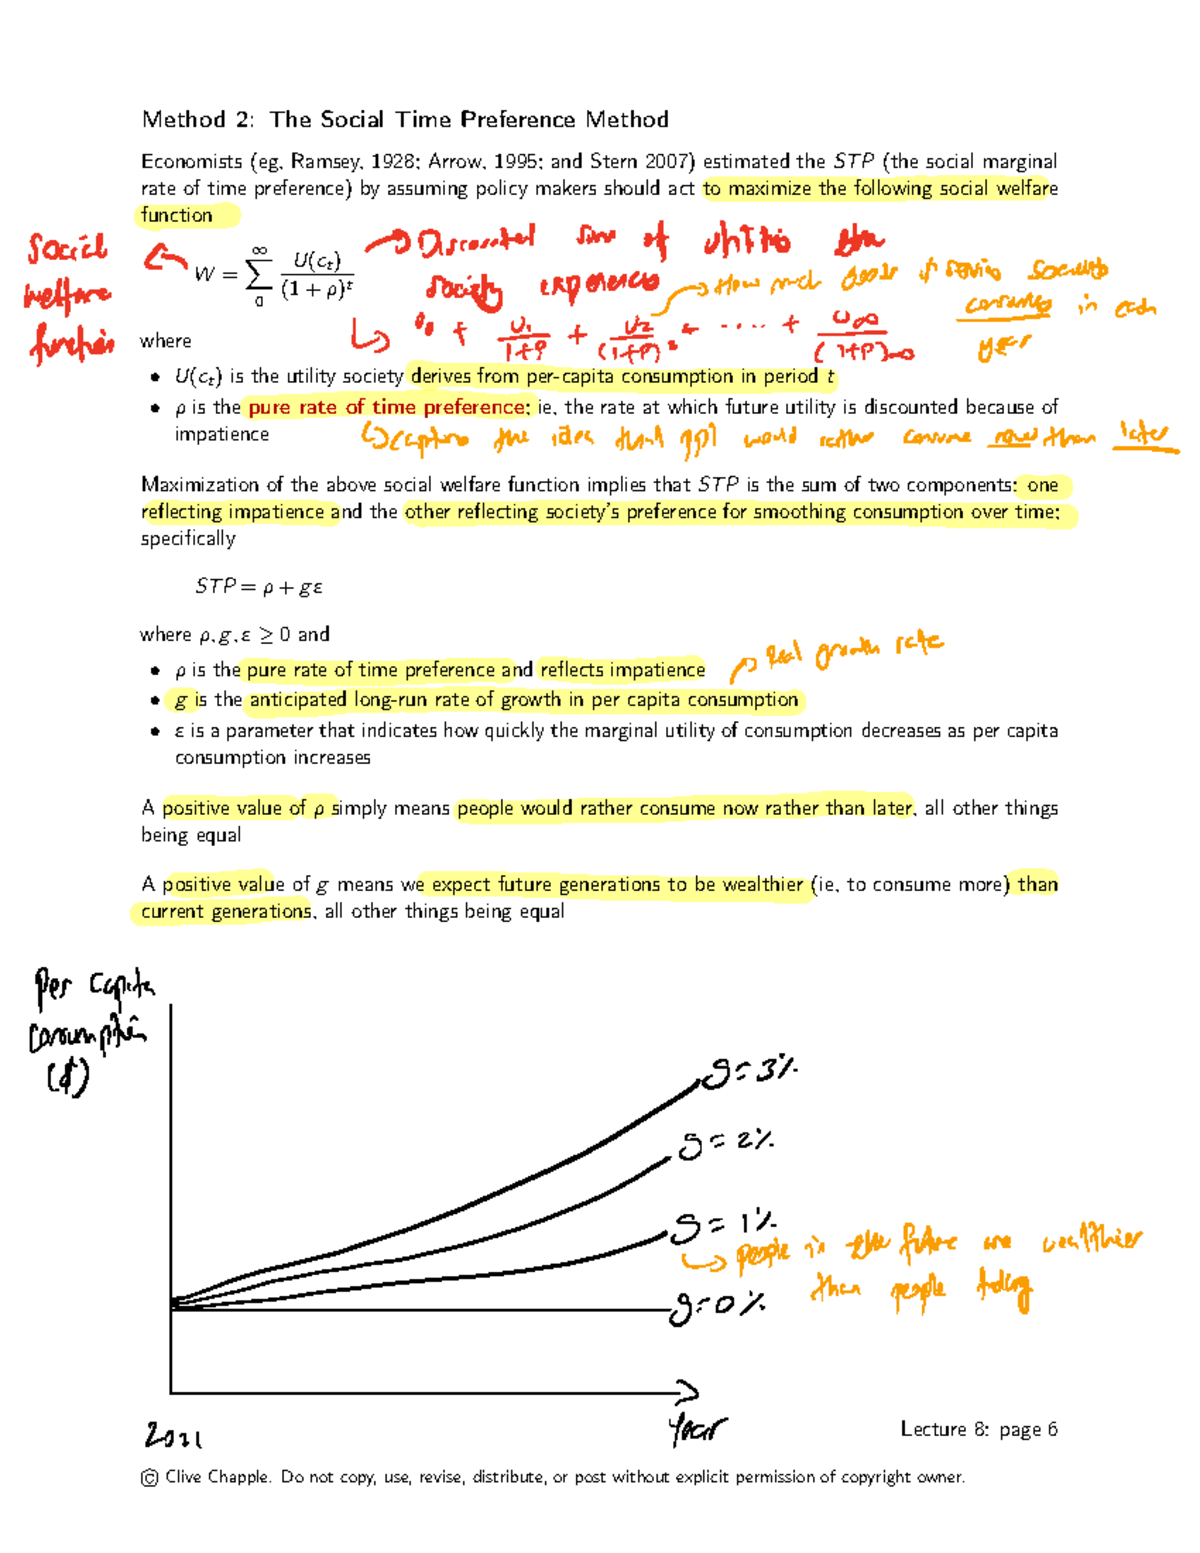 Method 2: The Social Time Preference Method
Economists (eg, Ramsey, 1928; Arrow, 1995; and Stern 2007) estimated the STP (the social marginal
rate of time preference) by assuming policy makers should act to maximize the following social welfare
function
Social
welfare
function
W = ∑_0^∞ U(c_t) / (1 + ρ)^t
Discounted sum of utilities the
society experiences
How much goods & services
consumes in each
year
U_0 + U_1/(1+ρ) + U_2/(1+ρ)^2 + .... + U_∞/(1+ρ)^∞
where
• U(c_t) is the utility society derives from per-capita consumption in period t
• ρ is the pure rate of time preference; ie, the rate at which future utility is discounted because of
impatience
captures the idea that ppl would rather consume now than later
Maximization of the above social welfare function implies that STP is the sum of two components: one
reflecting impatience and the other reflecting society's preference for smoothing consumption over time;
specifically
STP = ρ + gε
where ρ, g, ε ≥ 0 and
Real growth rate
• ρ is the pure rate of time preference and reflects impatience
• g is the anticipated long-run rate of growth in per capita consumption
• ε is a parameter that indicates how quickly the marginal utility of consumption decreases as per capita
consumption increases
A positive value of ρ simply means people would rather consume now rather than later, all other things
being equal
A positive value of g means we expect future generations to be wealthier (ie, to consume more) than
current generations, all other things being equal
Per Capita
Consumption
($)
g = 3%
g = 2%
g = 1%
people in the future are wealthier
than people today
g = 0%
2021
Year
Lecture 8: page 6
© Clive Chapple. Do not copy, use, revise, distribute, or post without explicit permission of copyright owner.